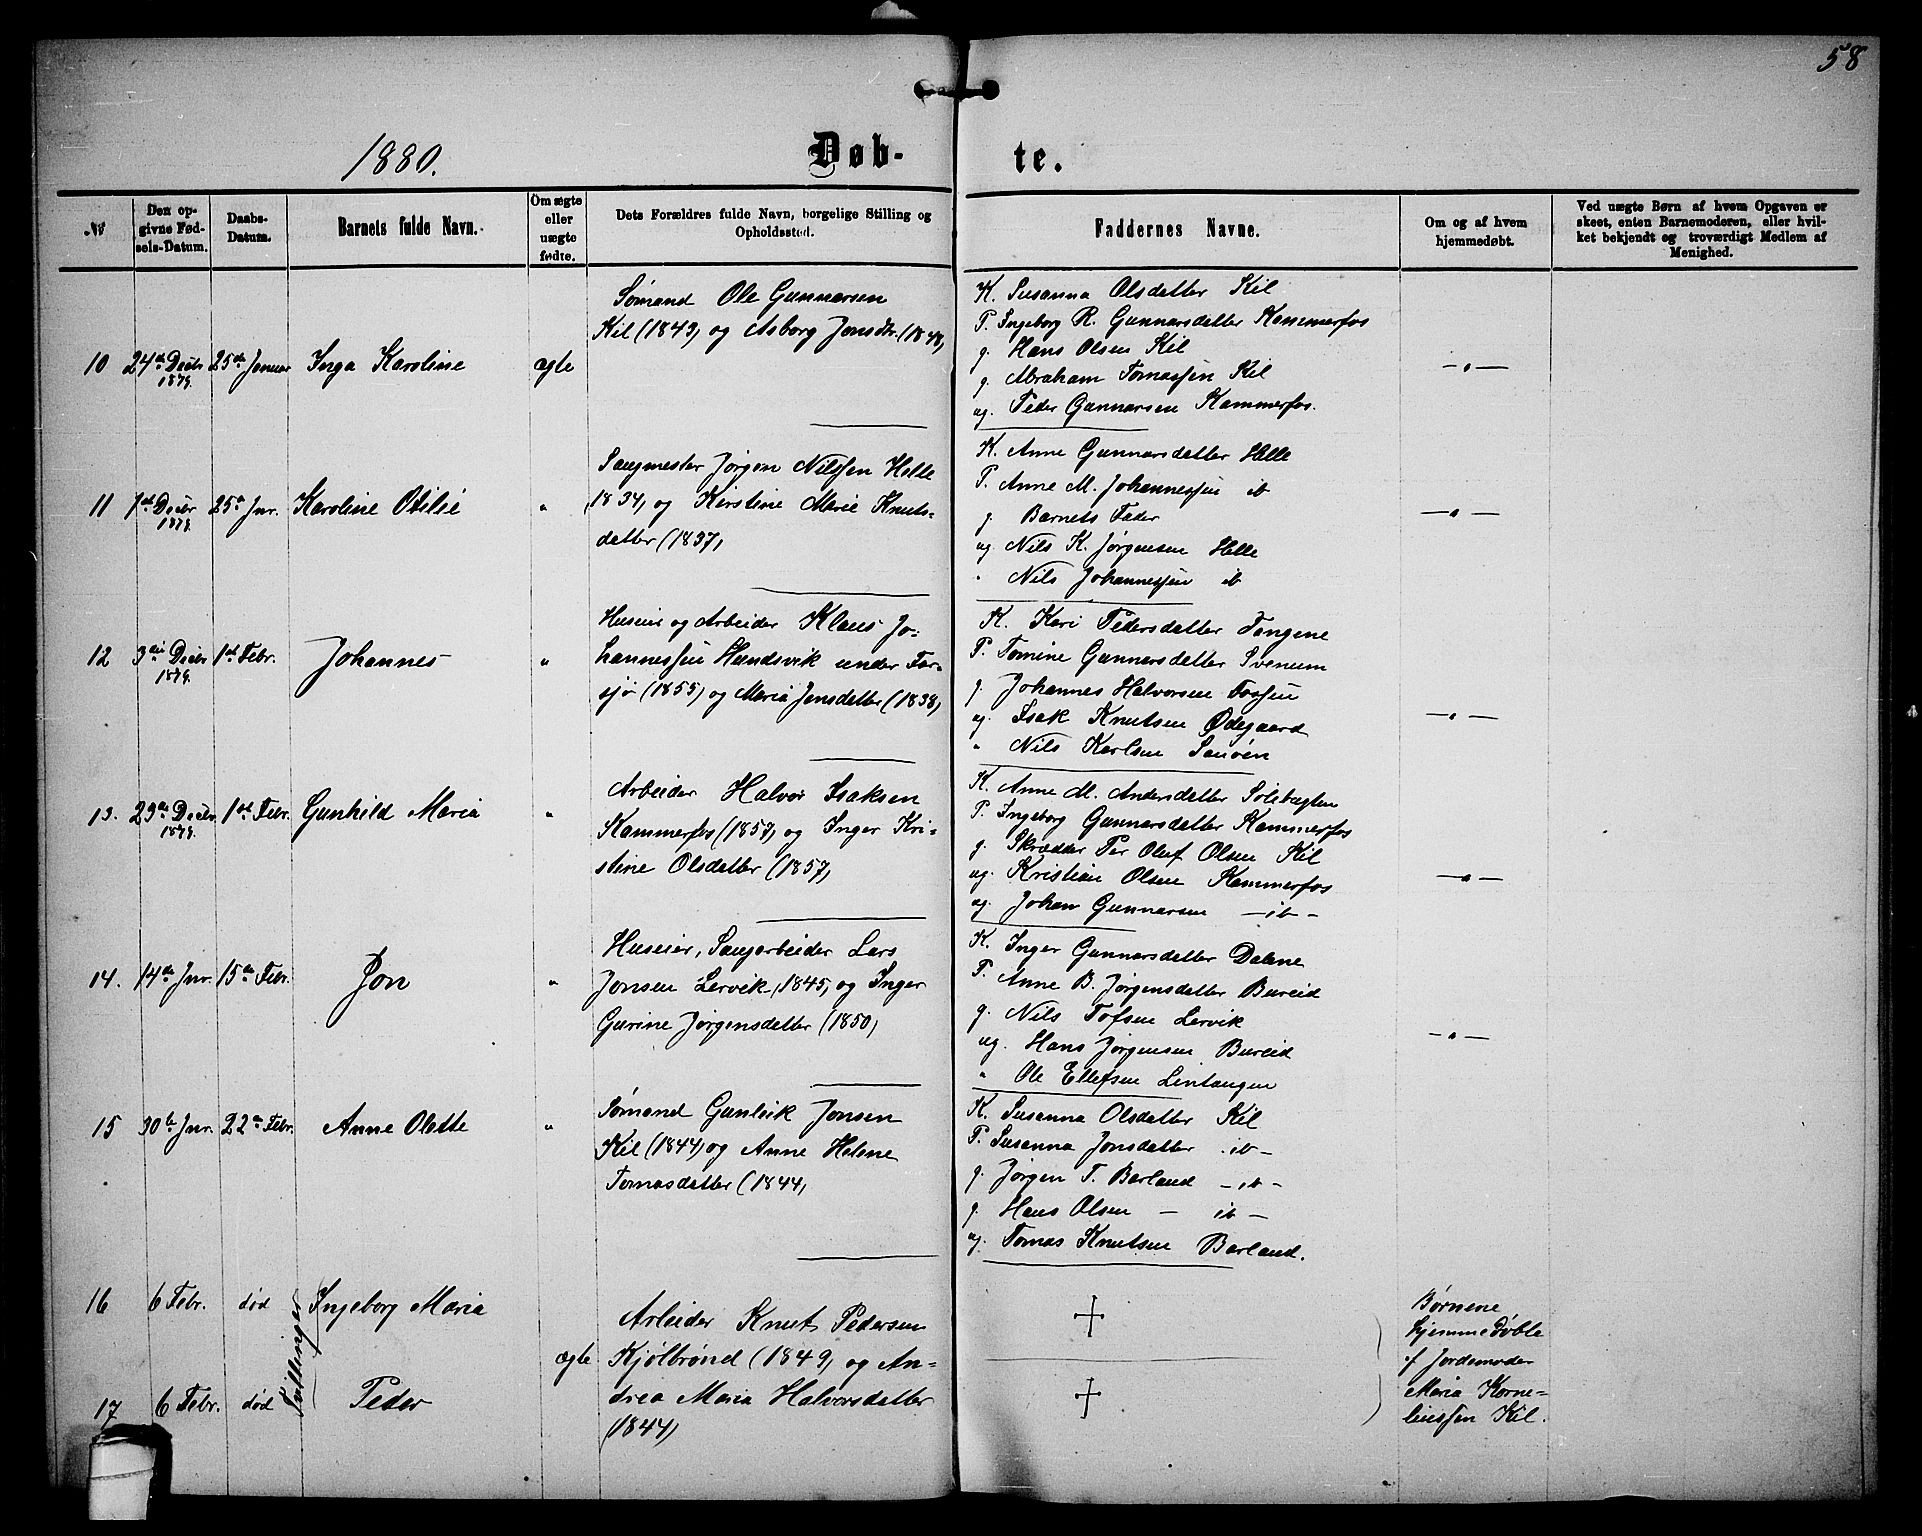 58
1880.
Døb-
te.
№
Den op-
givne Fød-
sels-Datum.
Daabs-
Datum.
Barnets fulde Navn.
Om ægte
eller
uægte
fødte.
Dets Forældres fulde Navn, borgelige Stilling og
Opholdssted.
Faddernes Navne.
Om og af hvem
hjemmedøbt.
Ved uægte Børn af hvem Opgaven er
skeet, enten Barnemoderen, eller hvil-
ket bekjendt og troværdigt Medlem af
Menighed.
10 24de Decbr 1879. 25de Januar Inga Karoline ægte
Sømand Ole Gunnarsen
Kil (1843) og Asborg Jonsdtr. (1848)
K. Susanna Olsdatter Kil
P. Ingeborg R. Gunnarsdatter Kammerfos
g. Hans Olsen Kil
g. Abraham Tomassen Kil
ug. Peder Gunnarsen Kammerfos.
—"—
11 1st Decbr 1879. 25de Jnr. Karoline Otilie "
Saugmester Jørgen Nilssen Helle
1834) og Kirstine Marie Knuts-
datter (1837)
K. Anne Gunnarsdatter Helle
P. Anne M. Johannessen ib
g. Barnets Fader
ug. Nils K. Jørgensen Helle
" Nils Johannessen ib
—"—
12 3die Decbr 1879. 1st Febr. Johannes "
Huseier og Arbeider Klaus Jo-
hannessen Hændsvik under Far-
sjø (1855) og Maria Jensdatter (1838)
K. Kari Pedersdatter Tangene
P. Tomine Gunnarsdatter Svenum
g. Johannes Halvorsen Fossen
ug. Isak Knutsen Ødegaard
" Nils Karlsen
—"—
13. 23de Decbr 1879. 1st Febr. Gunhild Maria "
Arbeider Halvor Isaksen
Kammerfos (1857) og Inger Kri-
stine Olsdatter (1857)
K. Anne M. Andersdatter
P. Ingeborg Gunnarsdatter Kammerfos
g. Skrædder Per Oluf Olsen Kil
ug. Kristian Olsen Kammerfos
ug. Johan Gunnarsen —ib—
—"—
14. 14de Jnr. 15de Febr. Jon "
Huseier, Saugarbeider Lars
Jonsen Lervik (1845) og Inger
Gurine Jørgensdatter (1850)
K. Inger Gunnarsdatter Dalene
P. Anne B. Jørgensdatter Bureid
g. Nils Tofsen Lervik
ug. Hans Jørgensen Bureid
" Ole Ellefsen Lintangen
—"—
15 30te Jnr. 22de Febr. Anne Olette "
Sømand Gunleik Jonsen
Kil (1844) og Anne Helene
Tomasdatter (1844)
K. Susanna Olsdatter Kil
P. Susanna Jonsdatter —ib—
g. Jørgen T. Barland —ib—
g. Hans Olsen — ib —
ug. Tomas Knutsen Barland.
16 6 Febr. død Ingeborg Maria
Tvillinger
17 6 Febr. død Peder
ægte
Arbeider Knut Pedersen
Kjølbrønd (1849) og An-
drea Maria Halvorsdatter
(1844)
Børnene
hjemmedøbte
af Jordemoder
Maria Korne-
liussen Kil.